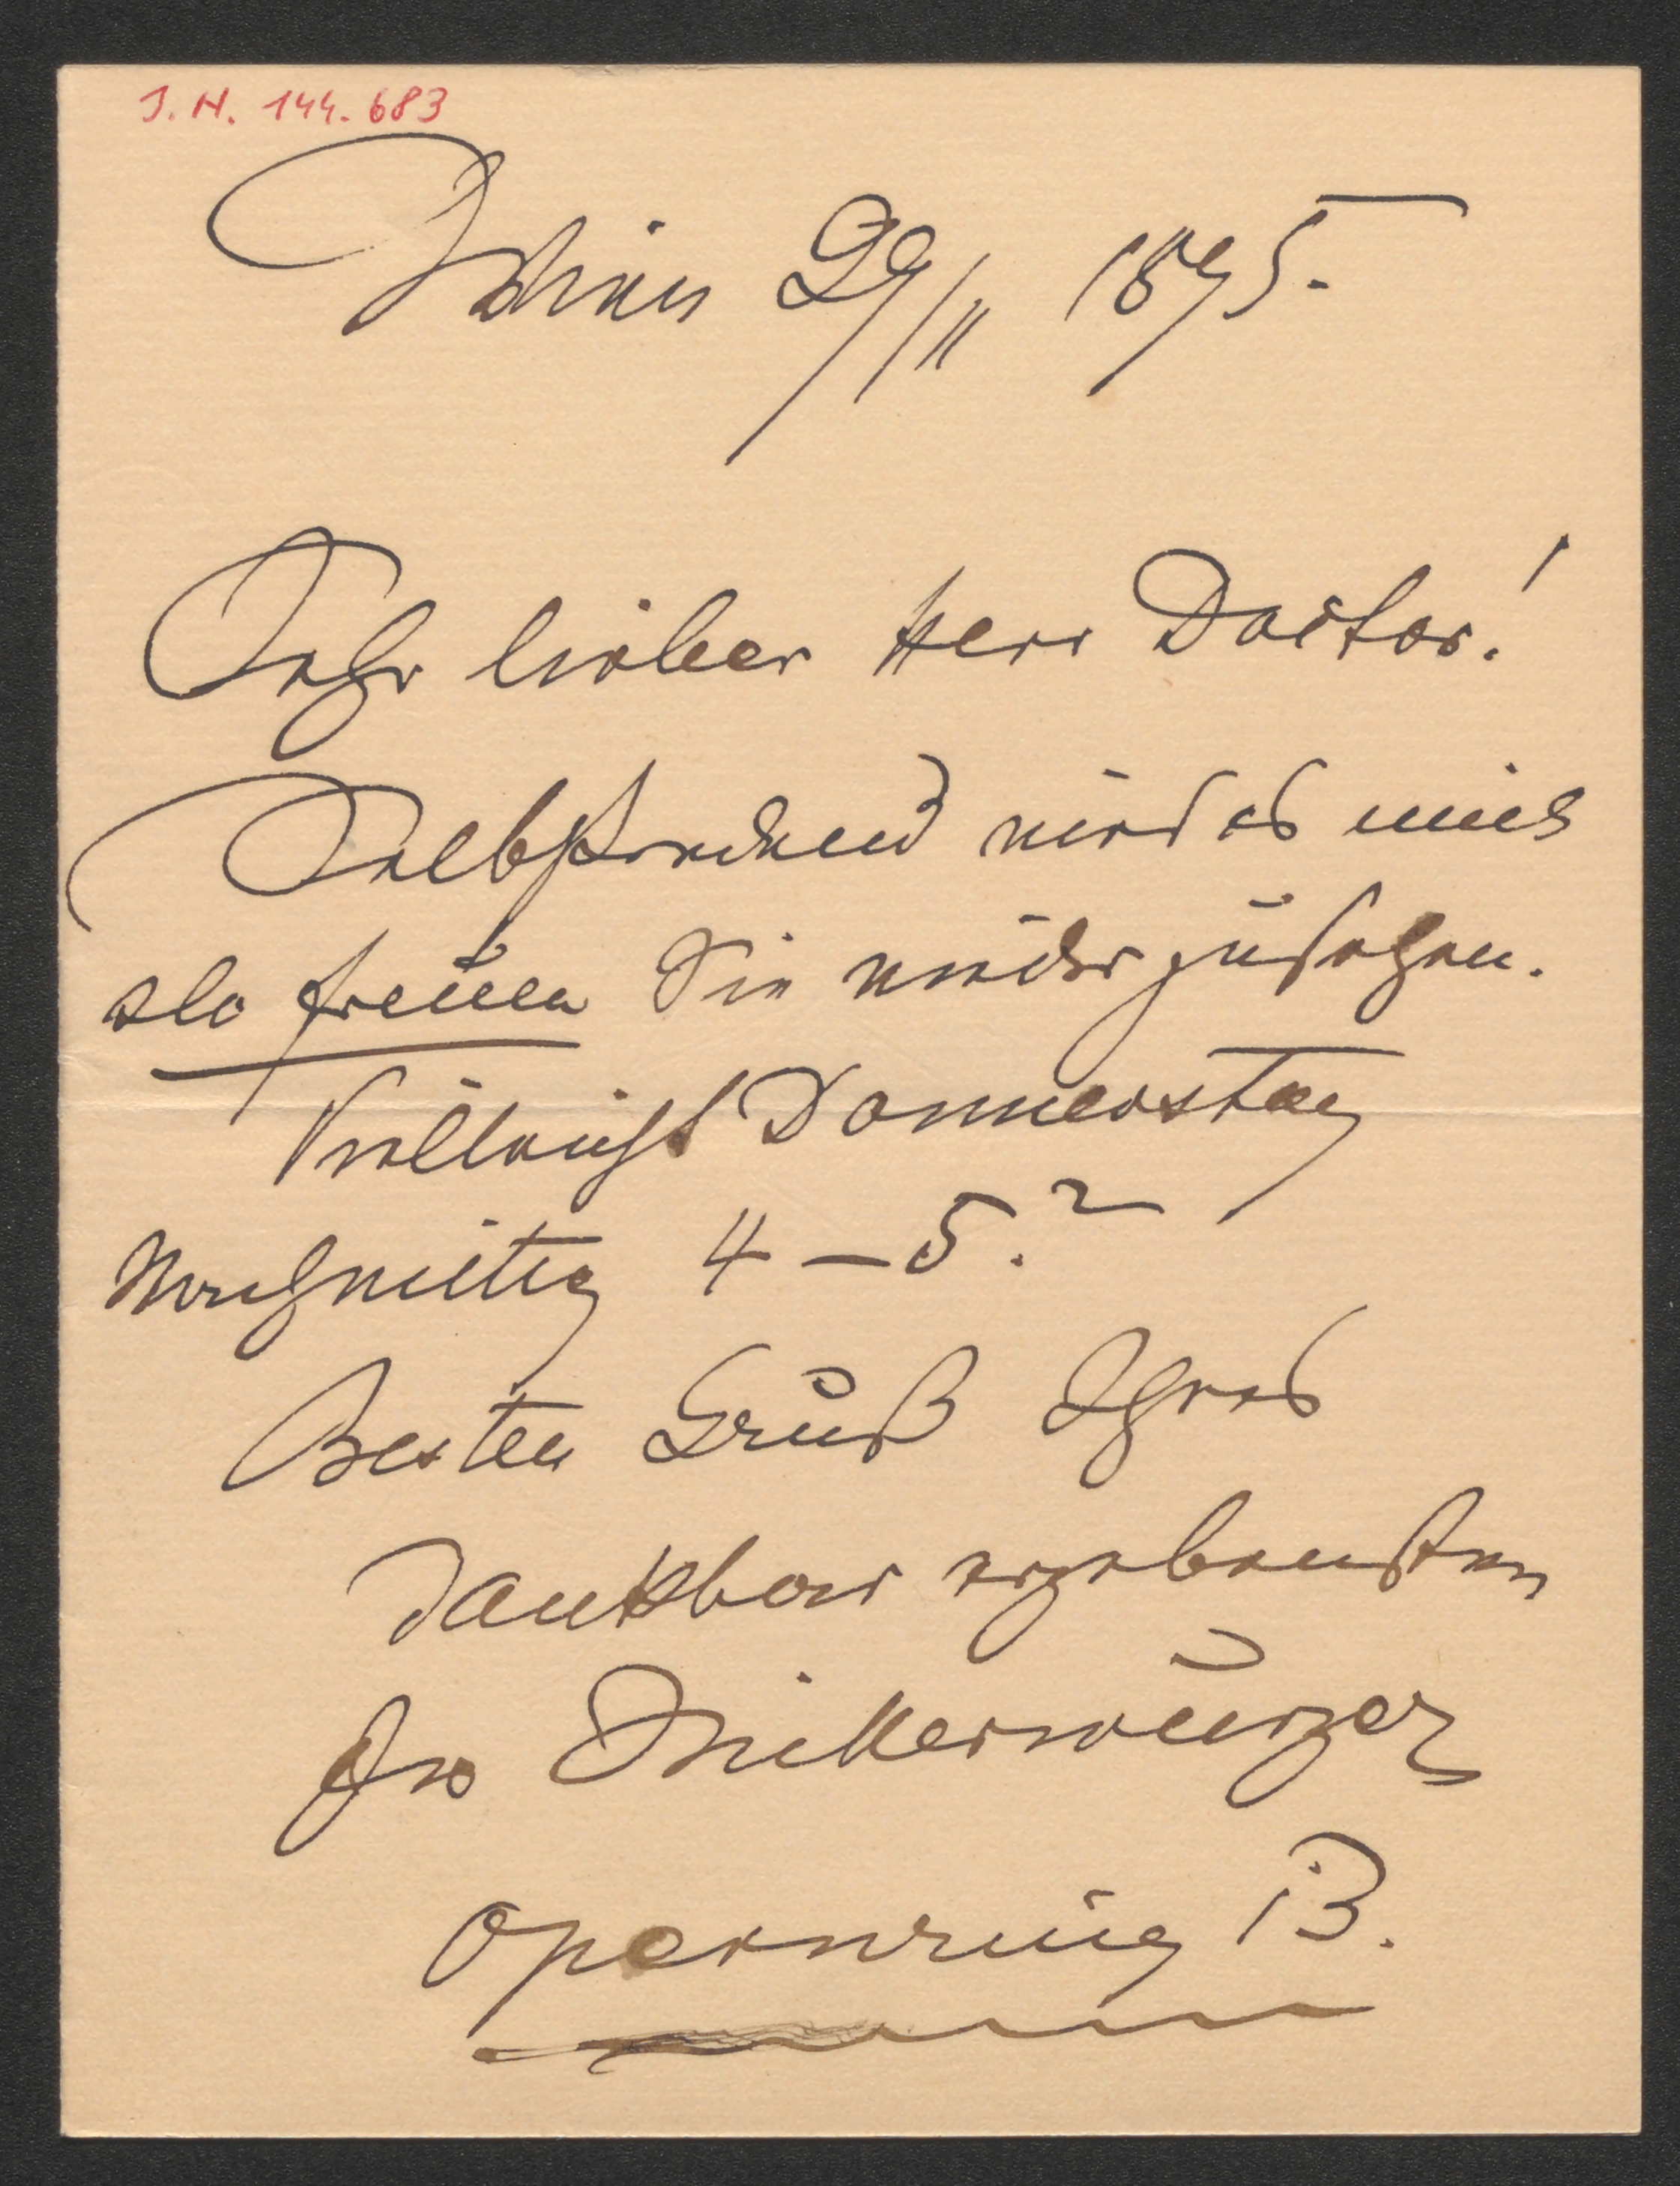 J. N. 144.683
Wien 29/II 1895.
Sehr lieber Herr Doctor!
Selbstredend wird es mich
freuen Sie wieder zu sehen.
Vielleicht Donnerstag
Nachmittag 4–5.?
Besten Gruß Ihres
dankbar ergebensten
Mitterwurzer
Opernring 13.